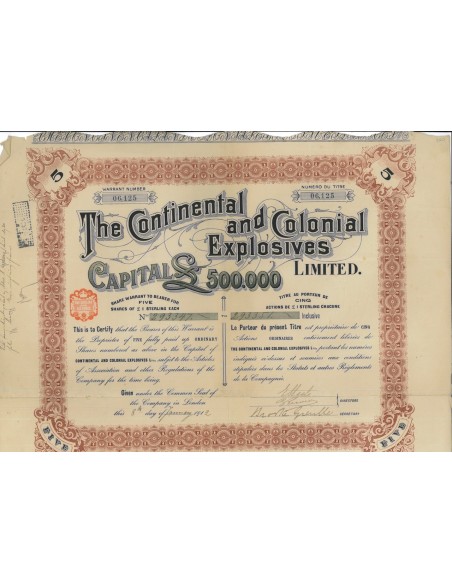 5 5
WARRANT NUMBER NUMERO DU TITRE
06,125 06,125
The Continental
and Colonial
Explosives
CAPITAL £ 500.000 LIMITED.
SHARE WARRANT TO BEARER FOR TITRE AU PORTEUR DE
FIVE CINQ
SHARES OF £ 1 STERLING EACH ACTIONS DE £ 1 STERLING CHACUNE
Nº Inclusive
This is to Certify that the Bearer of this Warrant is
the Proprietor of FIVE fully paid up ORDINARY
Shares numbered as above in the Capital of
THE CONTINENTAL AND COLONIAL EXPLOSIVES Ld., subject to the Articles
of Association and other Regulations of the
Company for the time being.
Given under the Common Seal of
the Company in London
this 8th day of January 1902
Le Porteur du présent Titre est propriétaire de CINQ
Actions ORDINAIRES entièrement libérées de
THE CONTINENTAL AND COLONIAL EXPLOSIVES Ld., portant les numéros
indiqués ci-dessus et soumises aux conditions
stipulées dans les Statuts et autres Règlements
de la Compagnie.
DIRECTORS
SECRETARY
FIVE FIVE